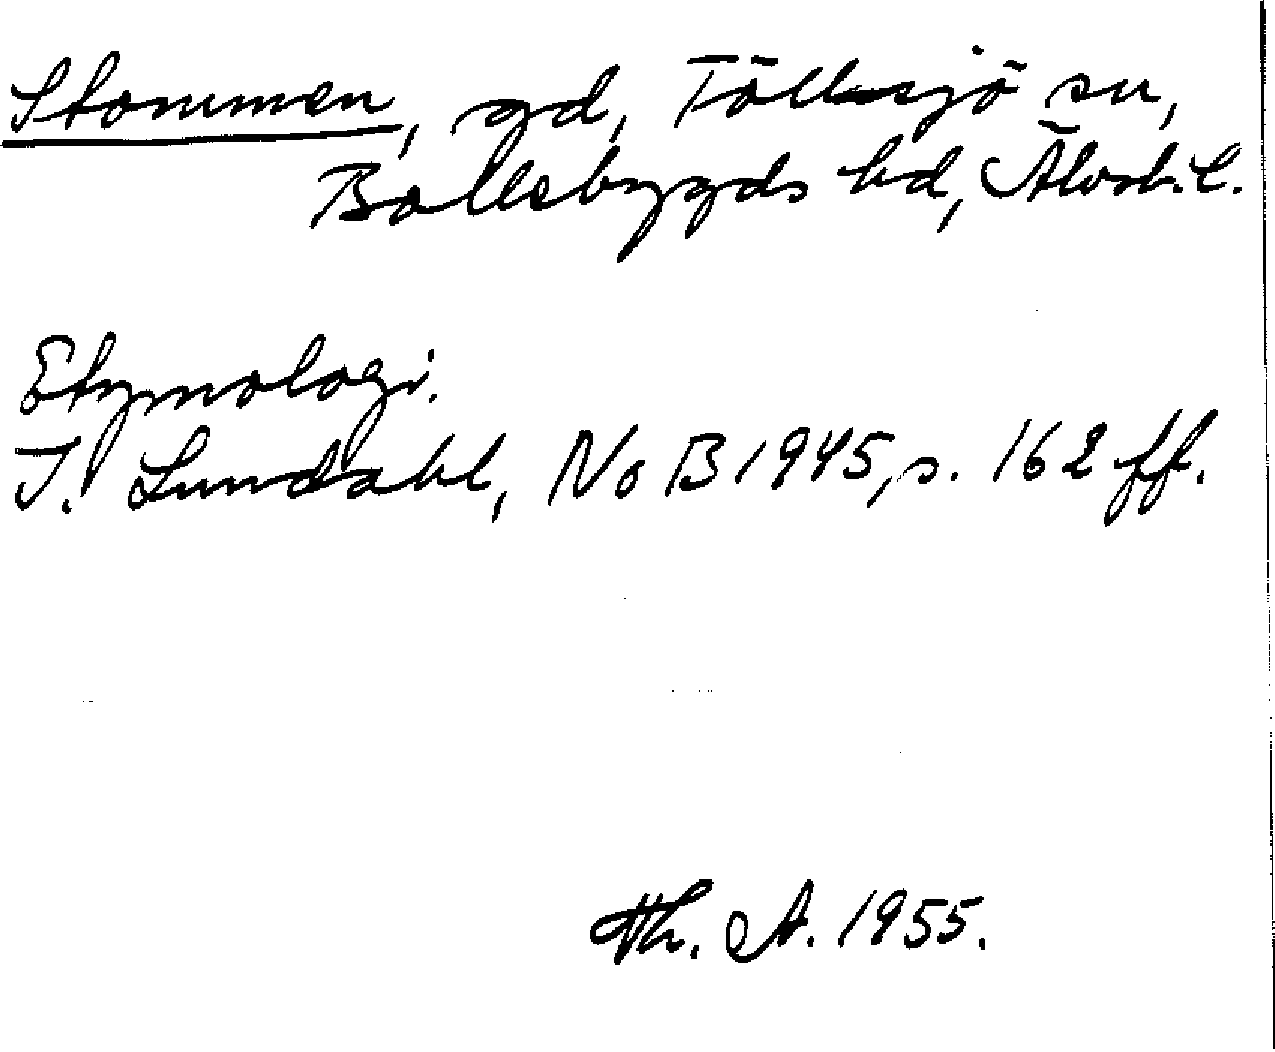 Stommen, gd, Töllsjö sn,
Bollebygds hd, Älvsb. l.
Etymologi.
I. Lundahl, NoB 1945, s. 162 ff.
Th. A. 1955.